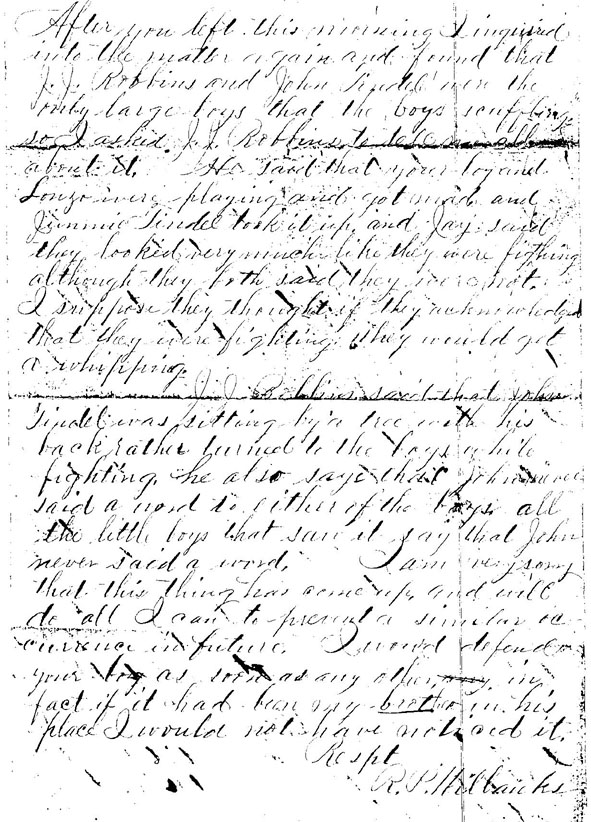 After you left this morning I inquired
into the matter again and found that
J. J. Robbins and John Tindel were the
only large boys that the boys scuffling
so I asked J. J. Robbins to tell me all
about it. He said that your boy and
Lonzo were playing and got mad and
Jimmie Tindel took it up, and Jay said
they looked very much like they were fithing
although they both said they were not.
I suppose they thought if they acknowledged
that they were fighting they would get
a whipping.
J. J. Robbins said that John
Tindel was sitting by a tree with his
back rather turned to the boys while
fighting. he also says that John never
said a word to either of the boys. all
the little boys that saw it say that John
never said a word. I am very sorry
that this thing has come up, and will
do all I can to prevent a similar oc-
currence in future. I would defend
your boy as soon as any other in
fact if it had been my brother in his
place I would not have noticed it.
Respt
R. P. Wilbanks